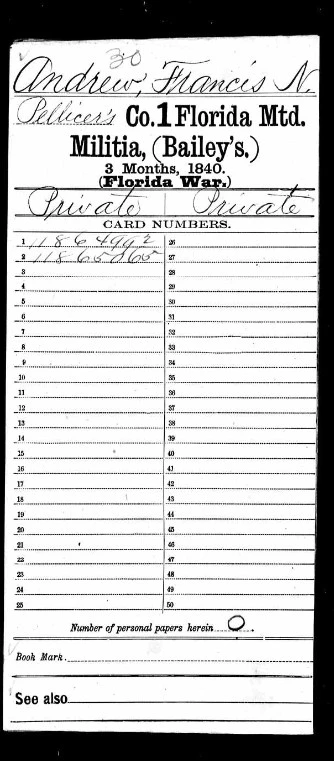 30
Andrew, Francis N.
Pellicer's Co. 1 Florida Mtd.
Militia, (Bailey's.)
3 Months, 1840.
(Florida War.)
Private Private
CARD NUMBERS.
1 11864992 26
2 11865065 27
3 28
4 29
5 30
6 31
7 32
8 33
9 34
10 35
11 36
12 37
13 38
14 39
15 40
16 41
17 42
18 43
19 44
20 45
21 46
22 47
23 48
24 49
25 50
Number of personal papers herein 0.
Book Mark.
See also